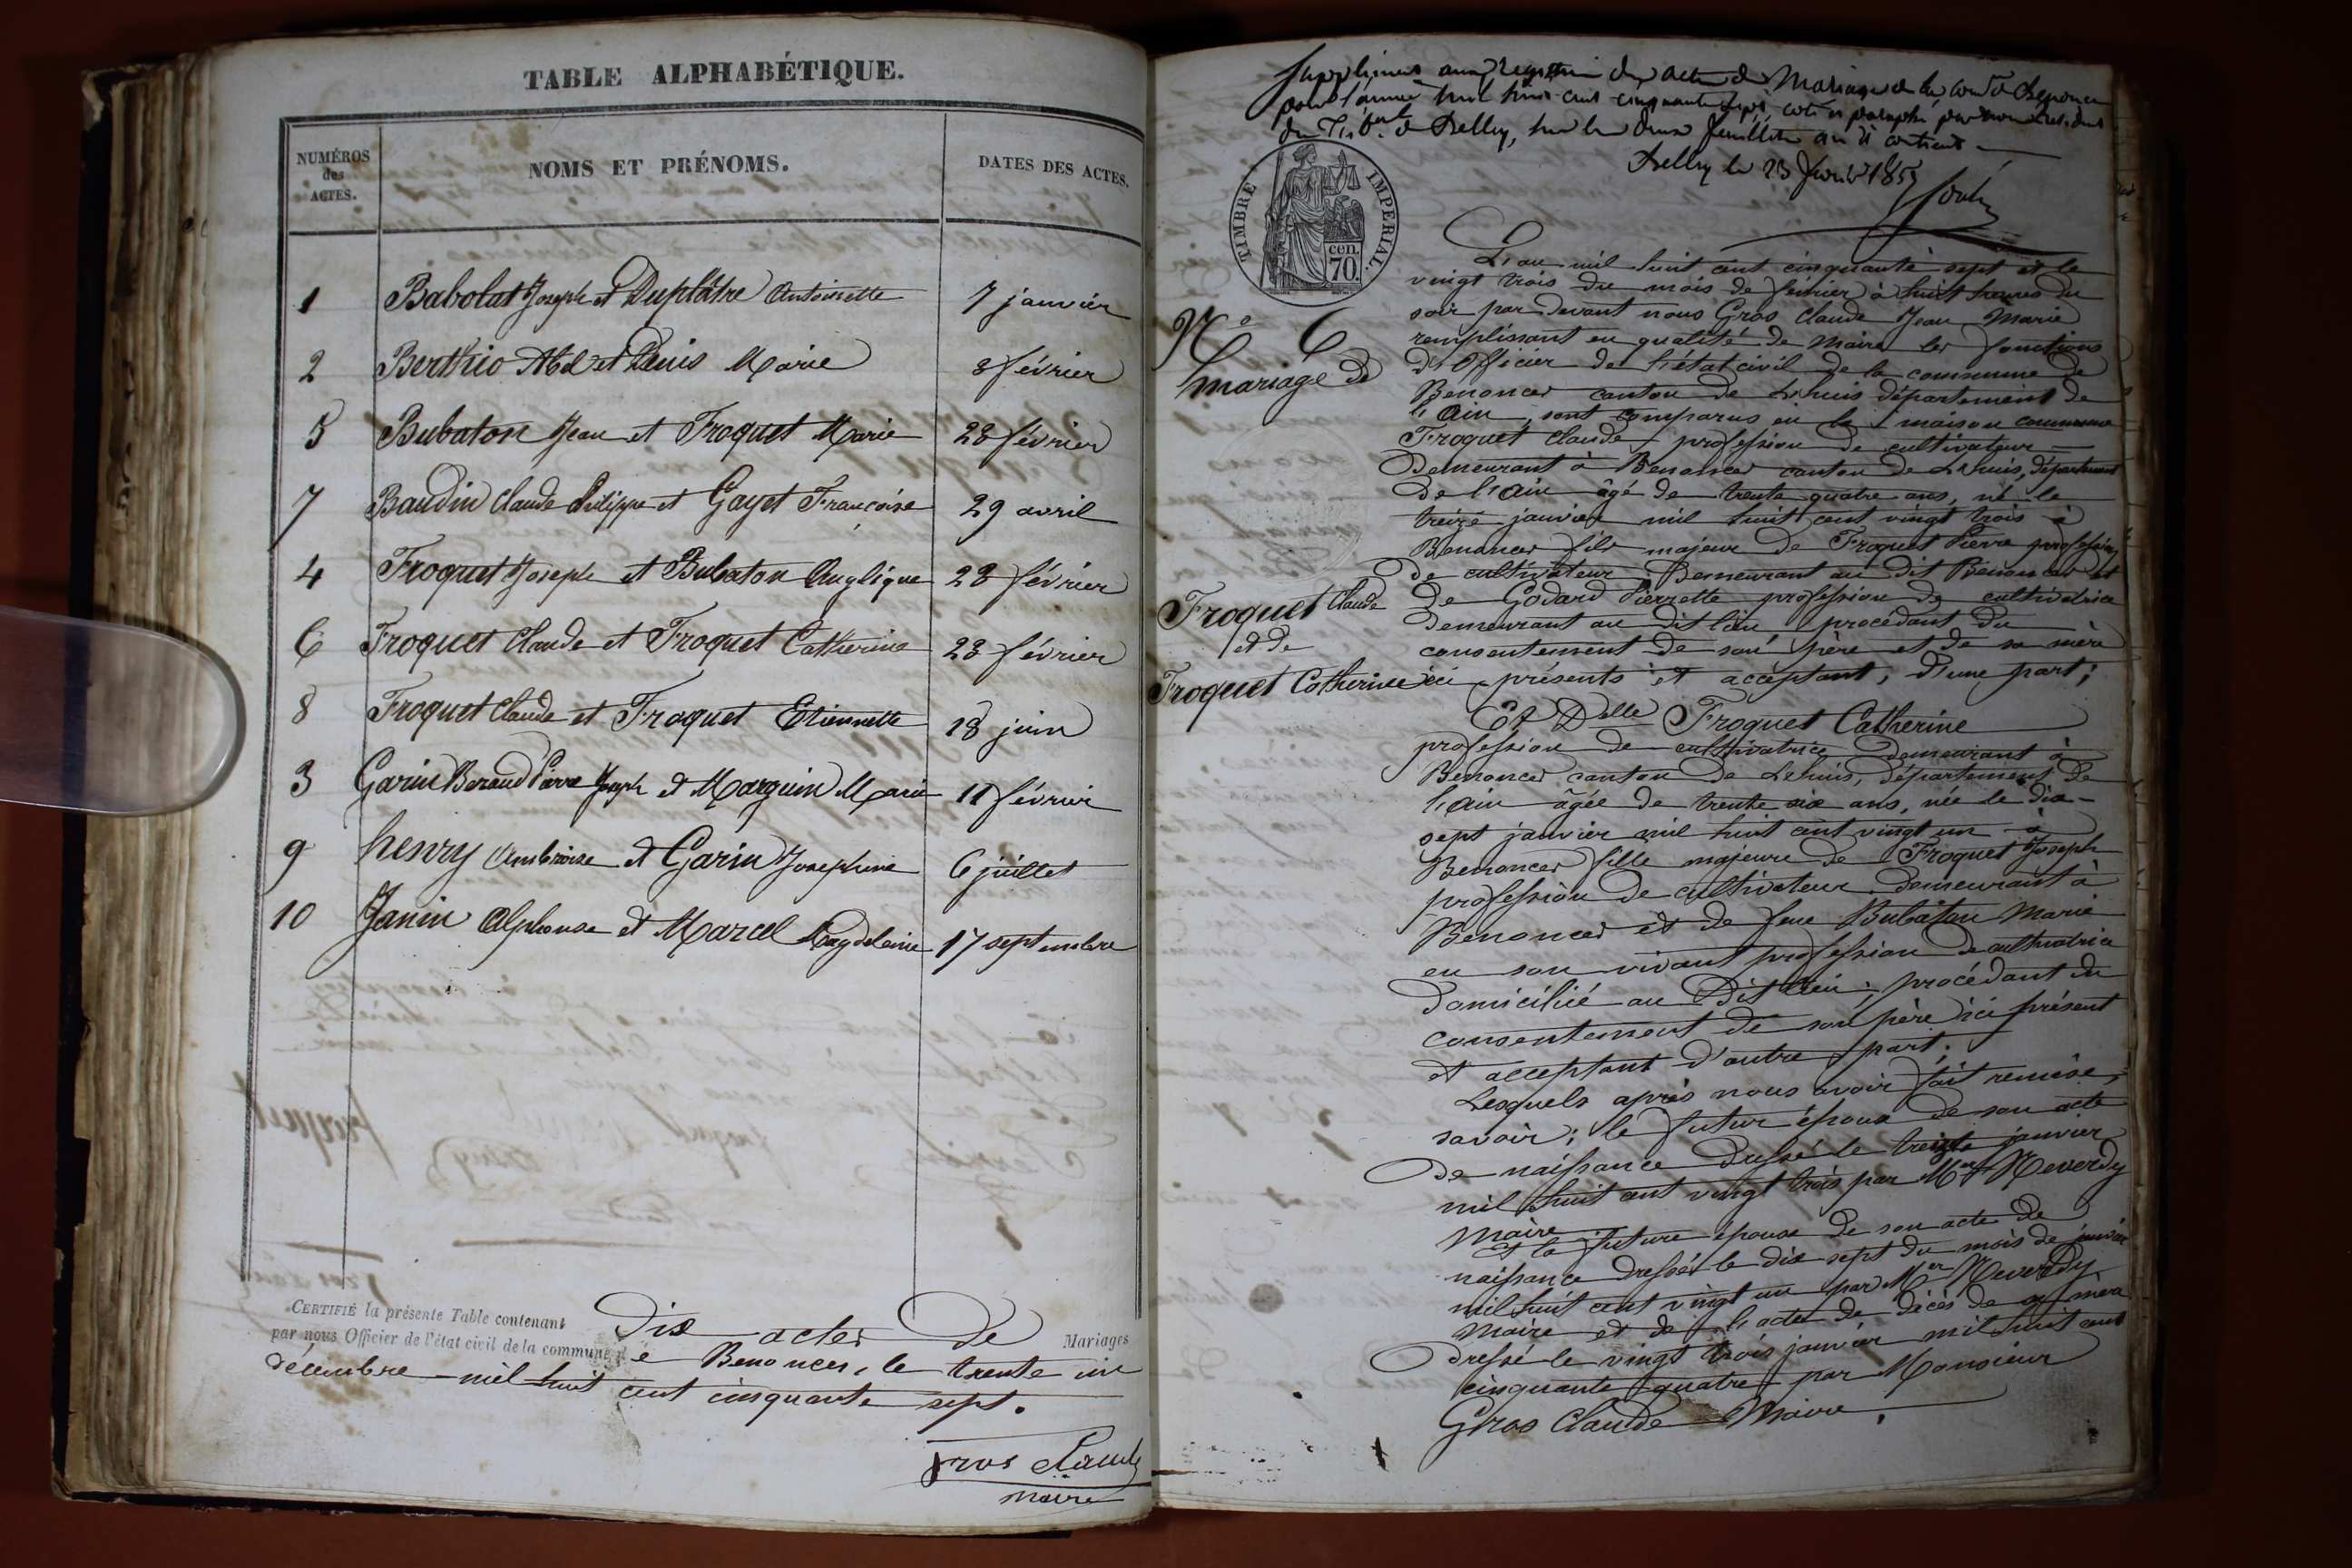 TABLE ALPHABÉTIQUE.
NUMÉROS des ACTES.
NOMS ET PRÉNOMS.
DATES DES ACTES.
1 Babolat Joseph et Duplâtre Antoinette 7 janvier
2 Berthio Abel et Denis Marie 8 février
5 Bubaton Jean et Froquet Marie 28 février
7 Baudin Claude Philippe et Gayet Françoise 29 avril
4 Froquet Joseph et Bubaton Anglique 28 février
6 Froquet Claude et Froquet Catherine 28 février
8 Froquet Claude et Froquet Etiennette 18 juin
3 Garin Beraud Pierre Joseph et Marguin Marie 11 février
9 henry Ambroise et Garin Josephine 6 juillet
10 Janin Alphonse et Marcel Magdeleine 17 septembre
CERTIFIÉ la présente Table contenant Dix actes de Mariages
par nous Officier de l'état civil de la commune de Benonces, le trente un
décembre mil huit cent cinquante sept.
Gros Claude
maire
Supplément aux registres des actes de Mariage de la
pour l'année mil huit cent cinquante sept, coté et paraphé par
du Trib. de Belley, sur les deux feuillets
Belley le 23 1857
TIMBRE IMPERIAL.
70 cen.
L'an mil huit cent cinquante sept et le
vingt trois du mois de fevrier à huit heures du
soir par devant nous Gros Claude Jean Marie
remplissant en qualité de Maire les fonctions
d'Officier de l'état civil de la commune de
Benonces canton de Lhuis département de
l'Ain, sont comparus en la maison commune
Froquet Claude profession de cultivateur
Demeurant à Benonces canton de Lhuis, département
de l'Ain âgé de trente quatre ans, né le
treize janvier mil huit cent vingt trois à
Benonces fils majeur de Froquet Pierre profession
de cultivateur Demeurant au dit Benonces et
de Godard Pierrette profession de cultivatrice
Demeurant au dit lieu procédant du
consentement de son père et de sa mère
ici présents et acceptant, d'une part;
N° 6
mariage de
Froquet Claude
et de
Froquet Catherine
Et Delle Froquet Catherine
profession de cultivatrice Demeurant à
Benonces canton de Lhuis, département de
l'Ain âgée de trente six ans, née le dix-
sept janvier mil huit cent vingt un à
Benonces fille majeure de Froquet Joseph
profession de cultivateur Demeurant à
Benonces et de feue Bubaton Marie
en son vivant profession de cultivatrice
Domicilié au Dit lieu; procédant du
consentement de son père ici présent
et acceptant d'autre part;
Lesquels après nous avoir fait remise,
savoir; le futur époux de son acte
de naissance dressé le treize janvier
mil huit cent vingt trois par Mr Neverdy
Maire
et la future épouse de son acte de
naissance dressé le dix sept du mois de janvier
mil huit cent vingt un par Mr Neverdy
Maire et de l'acte de décès de sa mère
dressé le vingt trois janvier mil huit cent
cinquante quatre par Monsieur
Gros Claude Maire.